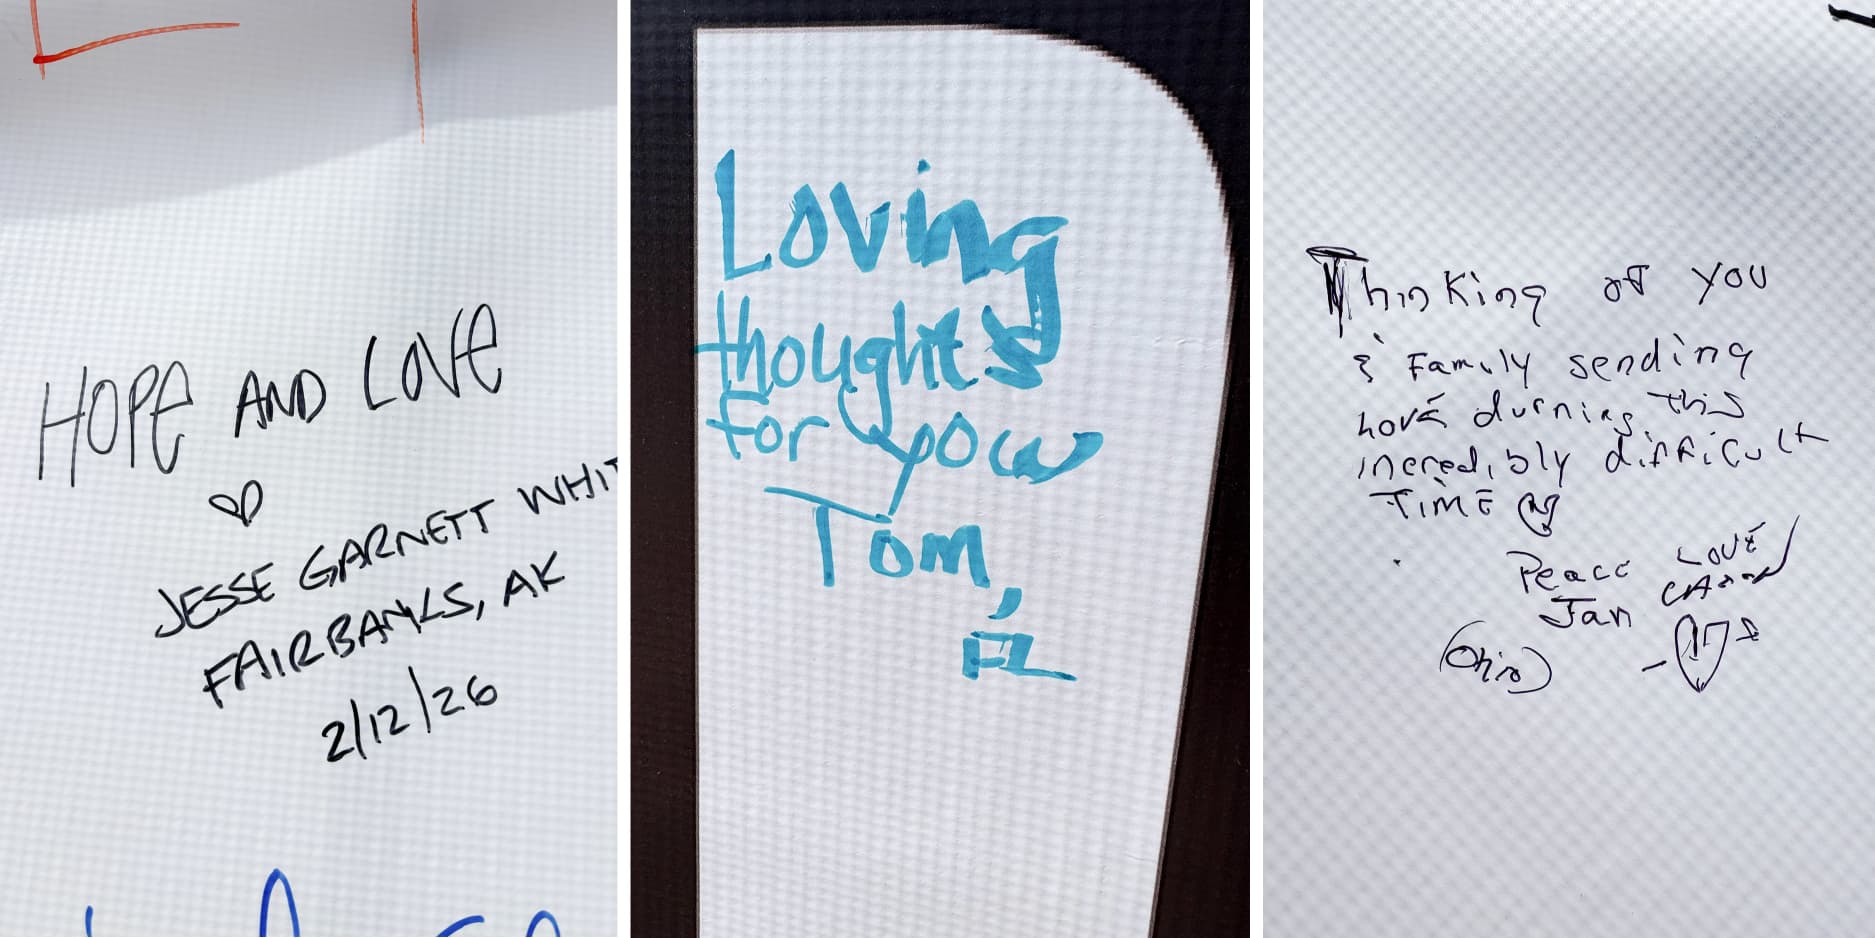 HOPE AND LOVE
♡
JESSE GARNETT WHIT
FAIRBANKS, AK
2/12/26
Loving
thoughts
for you
Tom,
FL
Thinking of you
& Family sending
Love durning this
incredibly difficult
TIME
Peace Love
Jan
(Ohio)